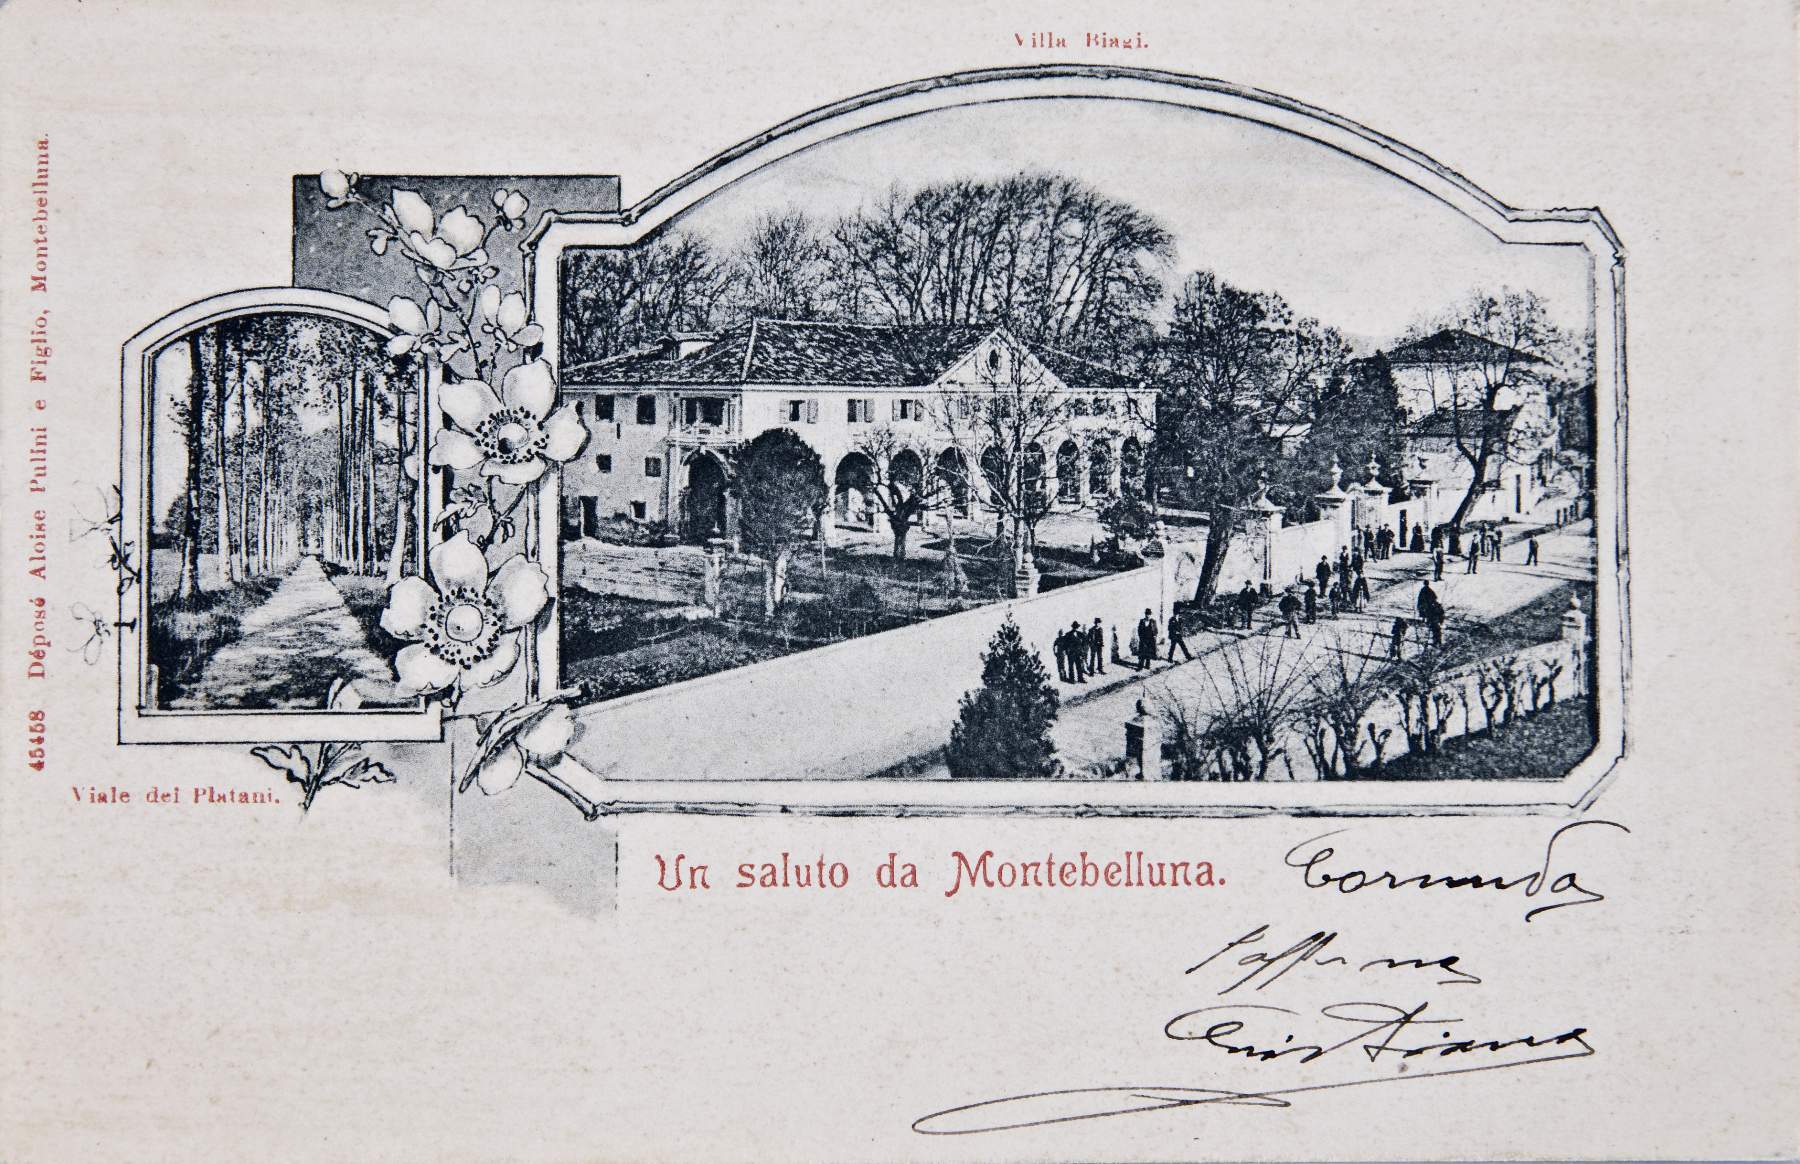 Villa Biagi.
45458 Déposé Aloise Pulini e Figlio, Montebelluna.
Viale dei Platani.
Un saluto da Montebelluna.
Cornuda
Cristiana